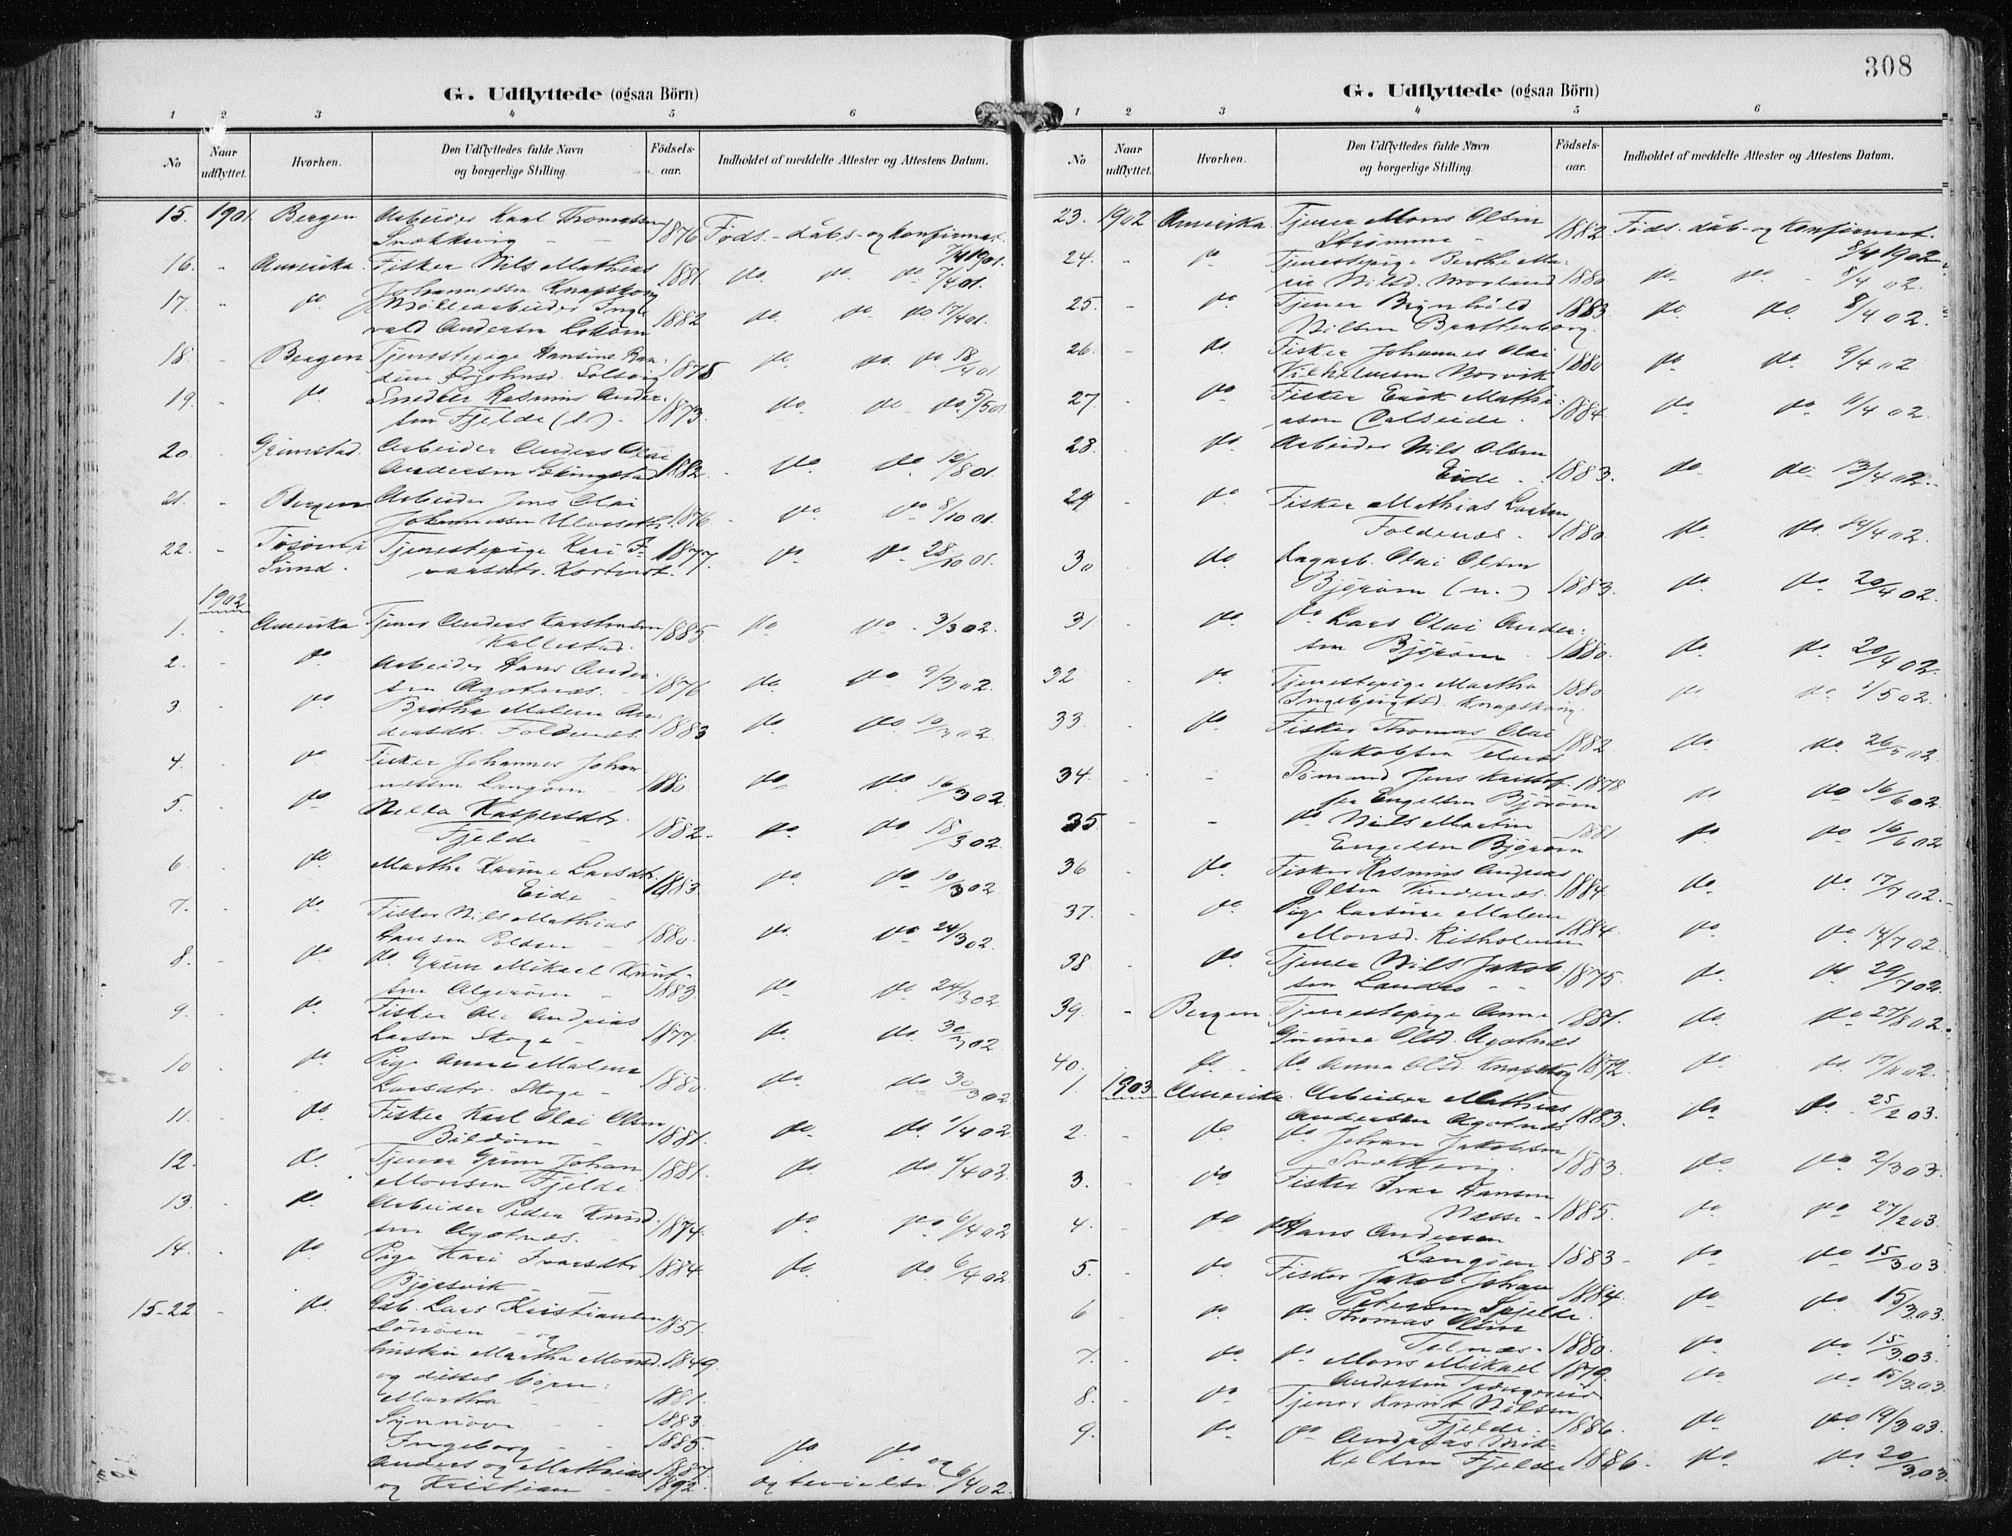 308
G. Udflyttede (ogsaa Börn)
1 2 3 4 5 6
No Naar udflyttet. Hvorhen. Den Udflyttedes fulde Navn og borgerlige Stilling. Födsels-aar. Indholdet af meddelte Attester og Attestens Datum.
15. 1901. Bergen Arbeider Karl Thomassen
Snekkevig - - 1876 Föds.- daabs- og konfirmat. 7/4 1901.
16. - Amerika. Fisker Nils Mathias
Johannessen Knapskog 1881. do do do 7/4 01.
17. " do Möllearbeider Inge-
vald Andersen 1882 do do do 17/4 01.
18. - Bergen Tjenestepige Hansine Ran-
dine Solsvig 1875 do do do 18/4 01.
19. - do. Snedker Rasmus Ander-
sen Fjelde 1873. do do do. 5/5 01.
20 - Grimstad. Arbeider Anders Olai
Andersen 1882. - do do. 12/8 01.
21. - Bergen Arbeider Jens Olai
Johannessen Ulveseth 1876 - do. do 8/10 01.
22. - Sund. Tjenestepige Kari I-
varsdtr. 1877. do do. 28/10 01.
1902
1. - Amerika Tjener Anders
Kallestad. 1885. do do. - 3/3 02.
2. - do. Arbeider Hans Ander-
sen Agotnes. - 1876 do. do 9/3 02.
3. - do Brithe Malene An-
dersdtr. Foldenes. 1883 do do. 10/3 02.
4. - do Fisker Johannes Johan-
nessen Langöen 1880. do do 16/3 02.
5. - do Kaspersdtr.
Fjelde - 1882. do do 18/3 02.
6. - do. Martha Karine Larsdtr.
Eide - 1883. do. do 10/3 02
7. - do. Fisker Nils Mathias
Hansen - 1880. do. do 24/3 02.
8. - do. do. Grim Mikael Knut-
sen Algeröen - 1883. do do. 24/3 02.
9. - do. Fisker Ole Andreas
Larsen Skoge - 1877. do do. 30/3 02.
10 - do Pige Anne Malene
Larsdtr. Skoge - 1880. do. do 30/3 02
11. - do. Fisker Karl Olai Olsen
Bildöen - 1881. do. do. 1/4 02
12. - do. Tjener Grim Johan
Monsen Fjelde. 1881. do do. 4/4 02
13. - do. Arbeider Peder Knud-
sen Agotnes. - 1874. do do 6/4 02
14. - do Pige Kari Ivarsdtr
Bjørsvik 1884. do do. 6/4 02.
15-22 - do. Gdb. Lars Kristiansen
- og 1851.
hustru Martha Monsd. 1849.
og disses börn:
Martha - - 1881.
Synnöve - - 1883.
Ingeborg - - 1885. do do - og
Anders og Mathias 1887,
og Kristian - 1892. 6/4 02.
G. Udflyttede (ogsaa Börn)
1 2 3 4 5 6
No Naar udflyttet. Hvorhen. Den Udflyttedes fulde Navn og borgerlige Stilling. Födsels-aar. Indholdet af meddelte Attester og Attestens Datum.
23. 1902 Amerika Tjener Mons Olsen
Strömme - 1882 Föds. daab- og Konfirmat. 8/4 1902
24. - do Tjenestepige Berthe Ma-
rie Nilsd. Morland 1880 do do. - 8/4 02.
25. - do. Tjener Brynhild
Nilsen Brattenborg. 1883. do do. 8/4 02.
26. - do. Fisker Johannes Olai
Vilhelmsen 1880 do do. 9/4 02.
27. - do Fisker Erik Mathi-
asen 1884. do do. 6/4 02.
28. - do. Arbeider Nils Olsen
Eide - 1883. do. do 13/4 02.
29 - do Fisker Mathias Larsen
Foldenes. - 1880. do do. 14/4 02.
30 - do Olai Olsen
Björöen 1883. do do. 20/4 02.
31. - do. do. Lars Olai Ander-
sen Björöen - 1880. do do. 20/4 02.
32 - do. Tjenestepige Martha
Ingebrigtsd. Knapskog. 1880 do do. 1/5 02.
33. - do Fisker Thomas Olai
Jakobsen 1882. do do. 26/5 02.
34. - - Sömand Jens Kristof-
fer Engelsen Björöen 1878 do do 16/6 02.
35 - - do Nils Martin
Engelsen Björöen 1881 do do 16/6 02
36 - do. Fisker Rasmus Andreas
Olsen 1884. do do. 17/7 02.
37. - do. Pige Larsine Malene
Monsd. Risholmen 1884. do do 14/7 02.
38. - do Tjener Nils Jakob-
sen Landro - 1875. do. do 29/7 02.
39. - Bergen Tjenestepige Anne
Olsd. Agotnes 1881. do do. 27/8 02.
40. - do - do Anna Olsd. Knapskog 1872. do do. 17/11 02.
1. 1903. Amerika. Arbeider Mathias
Andersen Agotnes 1883. do. do. 25/2 03.
2. - do do Johan Jakobsen
Snekkevig. 1883. do do. 2/3 03.
3. - do Fisker Ivar Hansen
Nesse - 1885. do. do 27/2 03.
4. - do do Hans Andersen
Langöen 1883- do do 15/3 03.
5. - do Fisker Jakob Johan
Petersen Spjelde. 1884. do do 15/3 03.
6 - do. do. Thomas Olsen
1880. do do. 15/3 03.
7. - do do Mons Mikael
Andersen 1879. do do. 15/3 03.
8. - do Tjener Knut Nilsen
Fjelde. 1886. do do 19/3 03.
9. - do do Andreas Mik-
kelsen Fjelde 1886. do- do. 20/3 03.